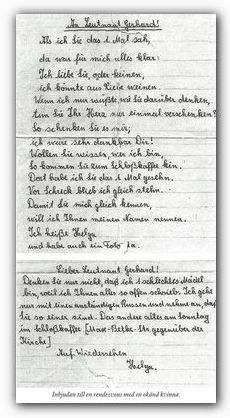 An Leutnant Gerhard!
Als ich Sie das 1 Mal sah,
da war für mich alles klar:
Ich liebe Sie, oder keinen,
ich könnte aus Liebe weinen.
Wenn ich nur wüßte, wie Sie darüber denken,
tun Sie Ihr Herz nur einmal verschenken?
So schenken Sie es mir,
ich wäre sehr dankbar Dir!
Wollen Sie wissen, wer ich bin,
So kommen Sie zum Schloßkaffe hin.
Dort habe ich Sie das 1 Mal gesehn,
Vor Schreck blieb ich gleich stehn.
Damit Sie mich gleich kennen,
will ich Ihnen meinen Namen nennen.
Ich heiße Helga
und habe auch ein Foto da.
Lieber Leutnant Gerhard!
Denken Sie nur nicht, daß ich 1 schlechtes Mädel
bin, weil ich Ihnen alles so offen schrieb. Ich gehe
nur mit einen anständigen Russen und nehme an, daß
Sie so einer sind. Das andere alles am Sonntag
im Schloßkaffee (gegenüber der
Kirche)
Auf Wiedersehen
Helga.
Inbjudan till en rendezvous med en okänd kvinna.